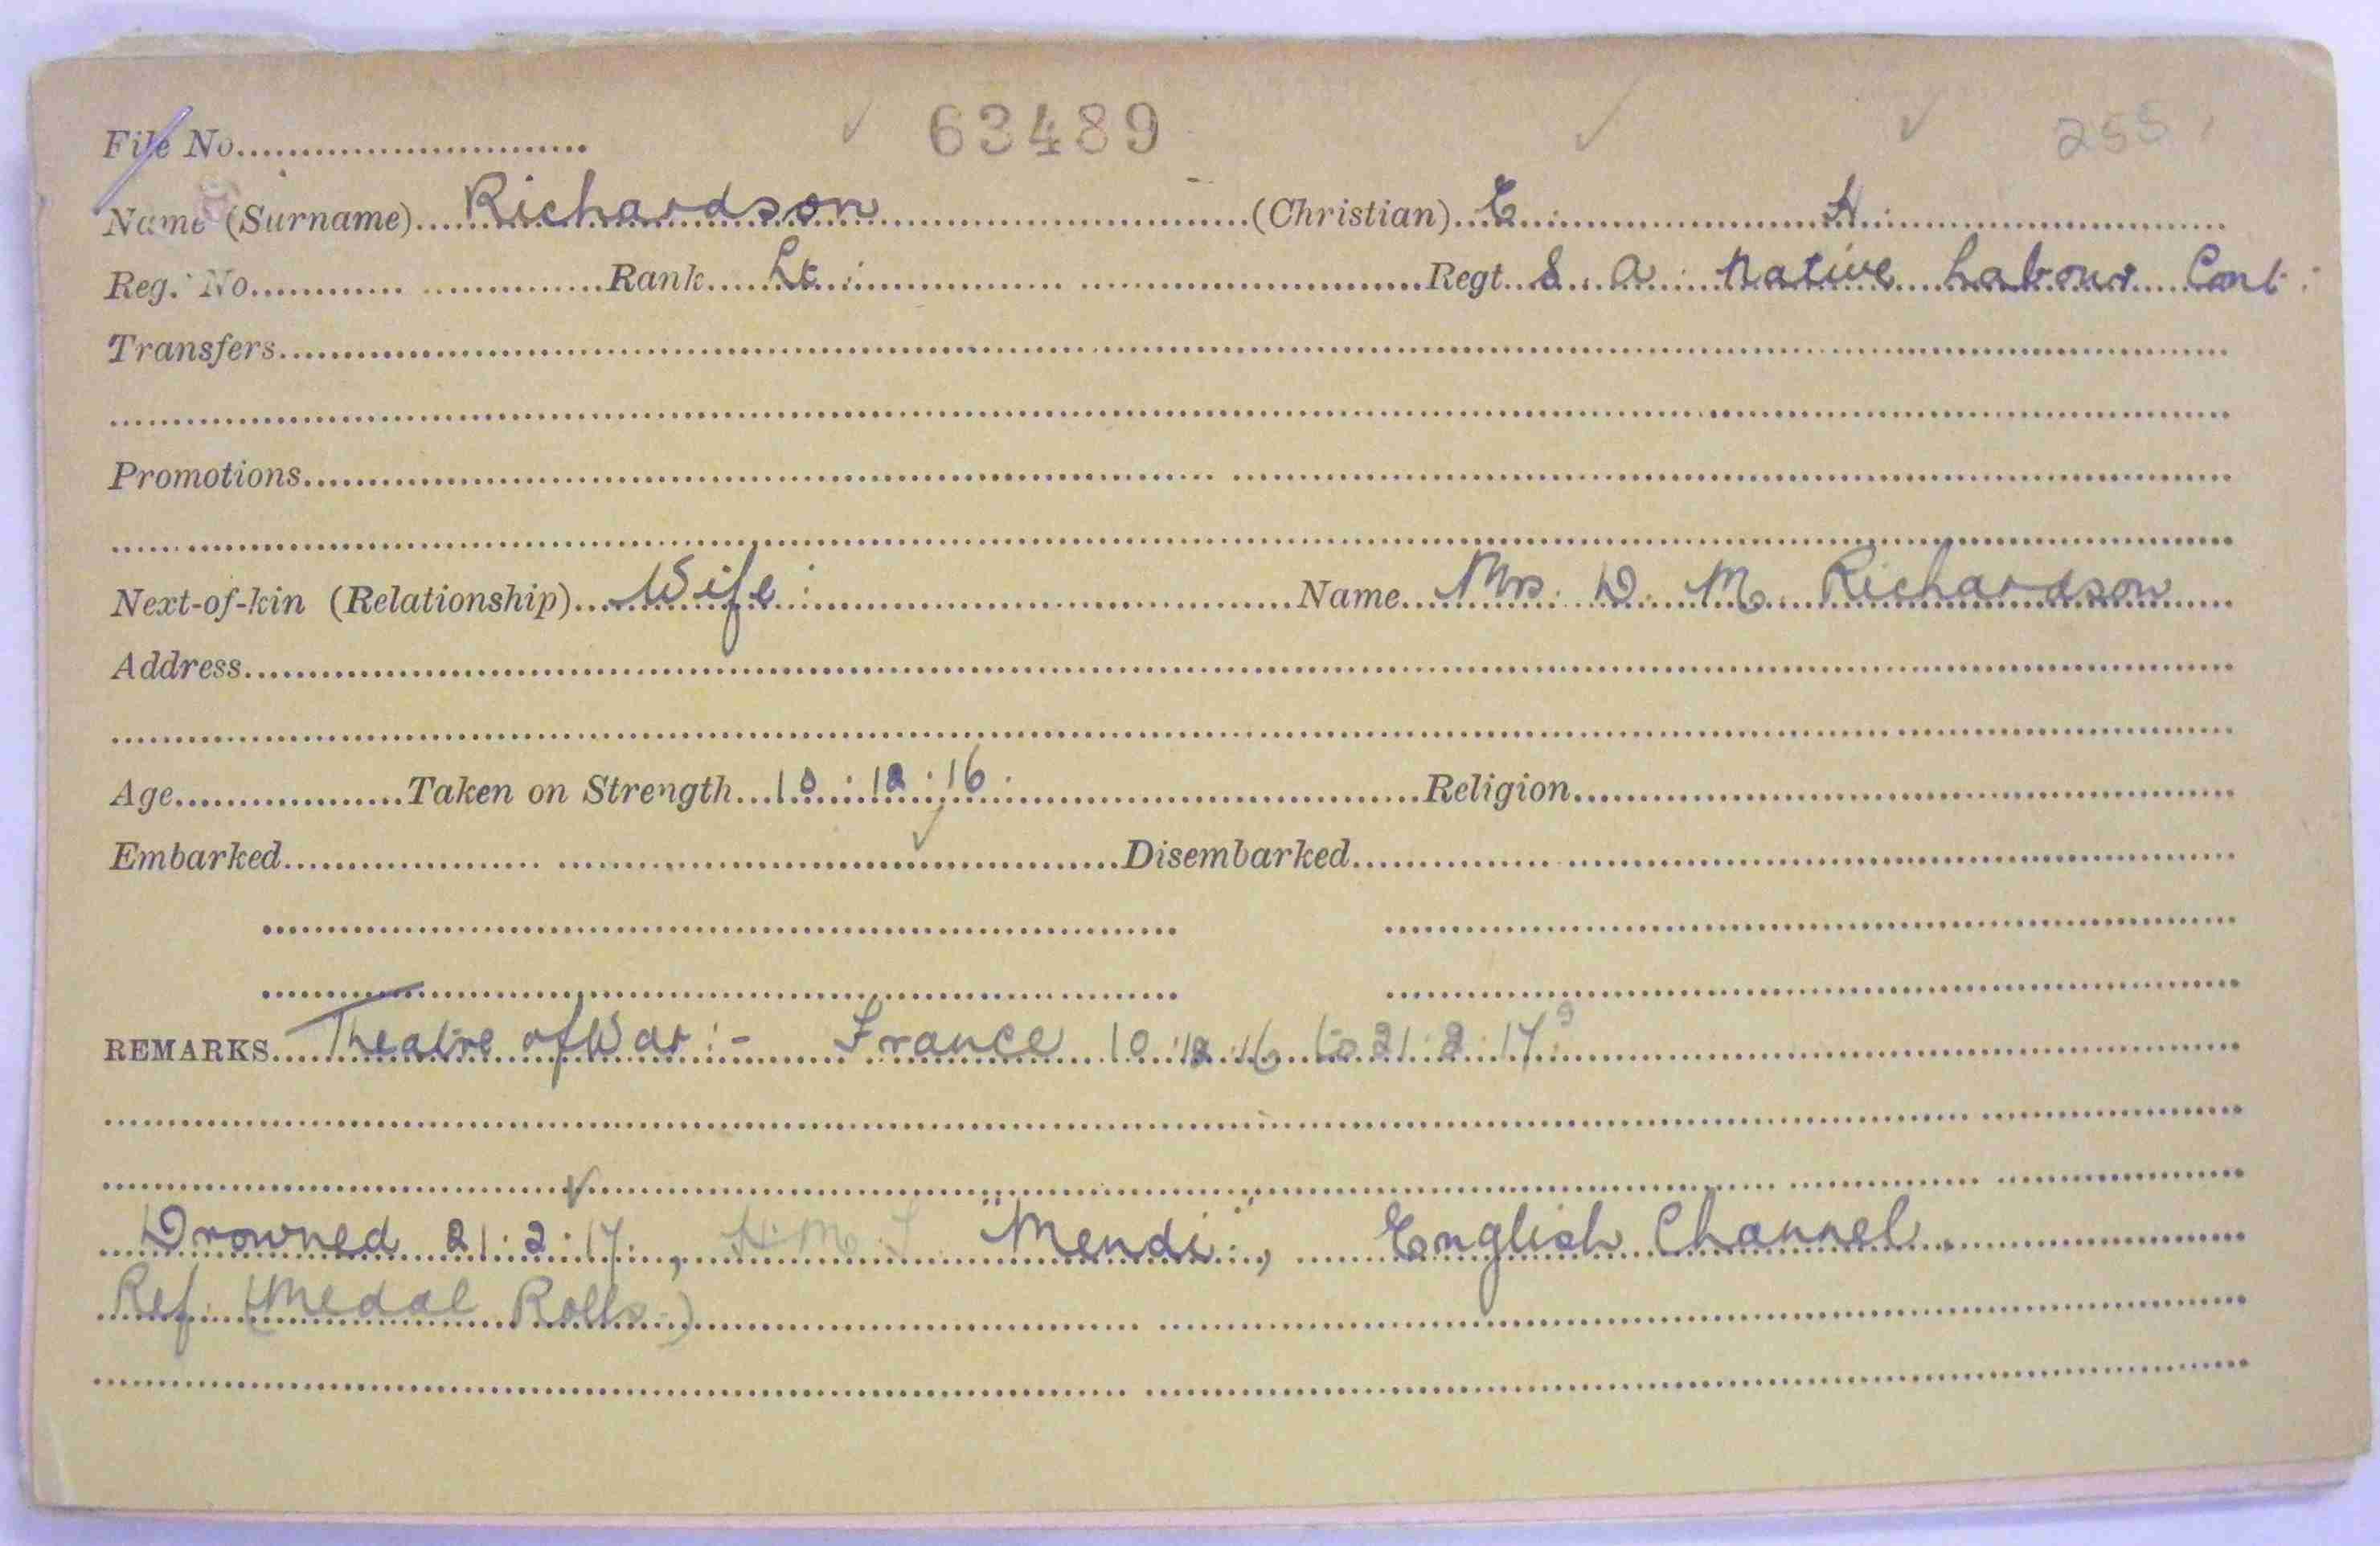 63489 255
File No.
Name (Surname) Richardson (Christian) E. H.
Reg. No. Rank Lt. Regt. S. A. Native Labour Cont.
Transfers
Promotions
Next-of-kin (Relationship) Wife. Name Mrs. D. M. Richardson
Address
Age Taken on Strength 10.12.16. Religion
Embarked Disembarked
REMARKS Theatre of War:- France 10.12.16 to 21.2.17.
Drowned 21.2.17., H.M.T. "Mendi", English Channel.
Ref. (Medal Rolls.)